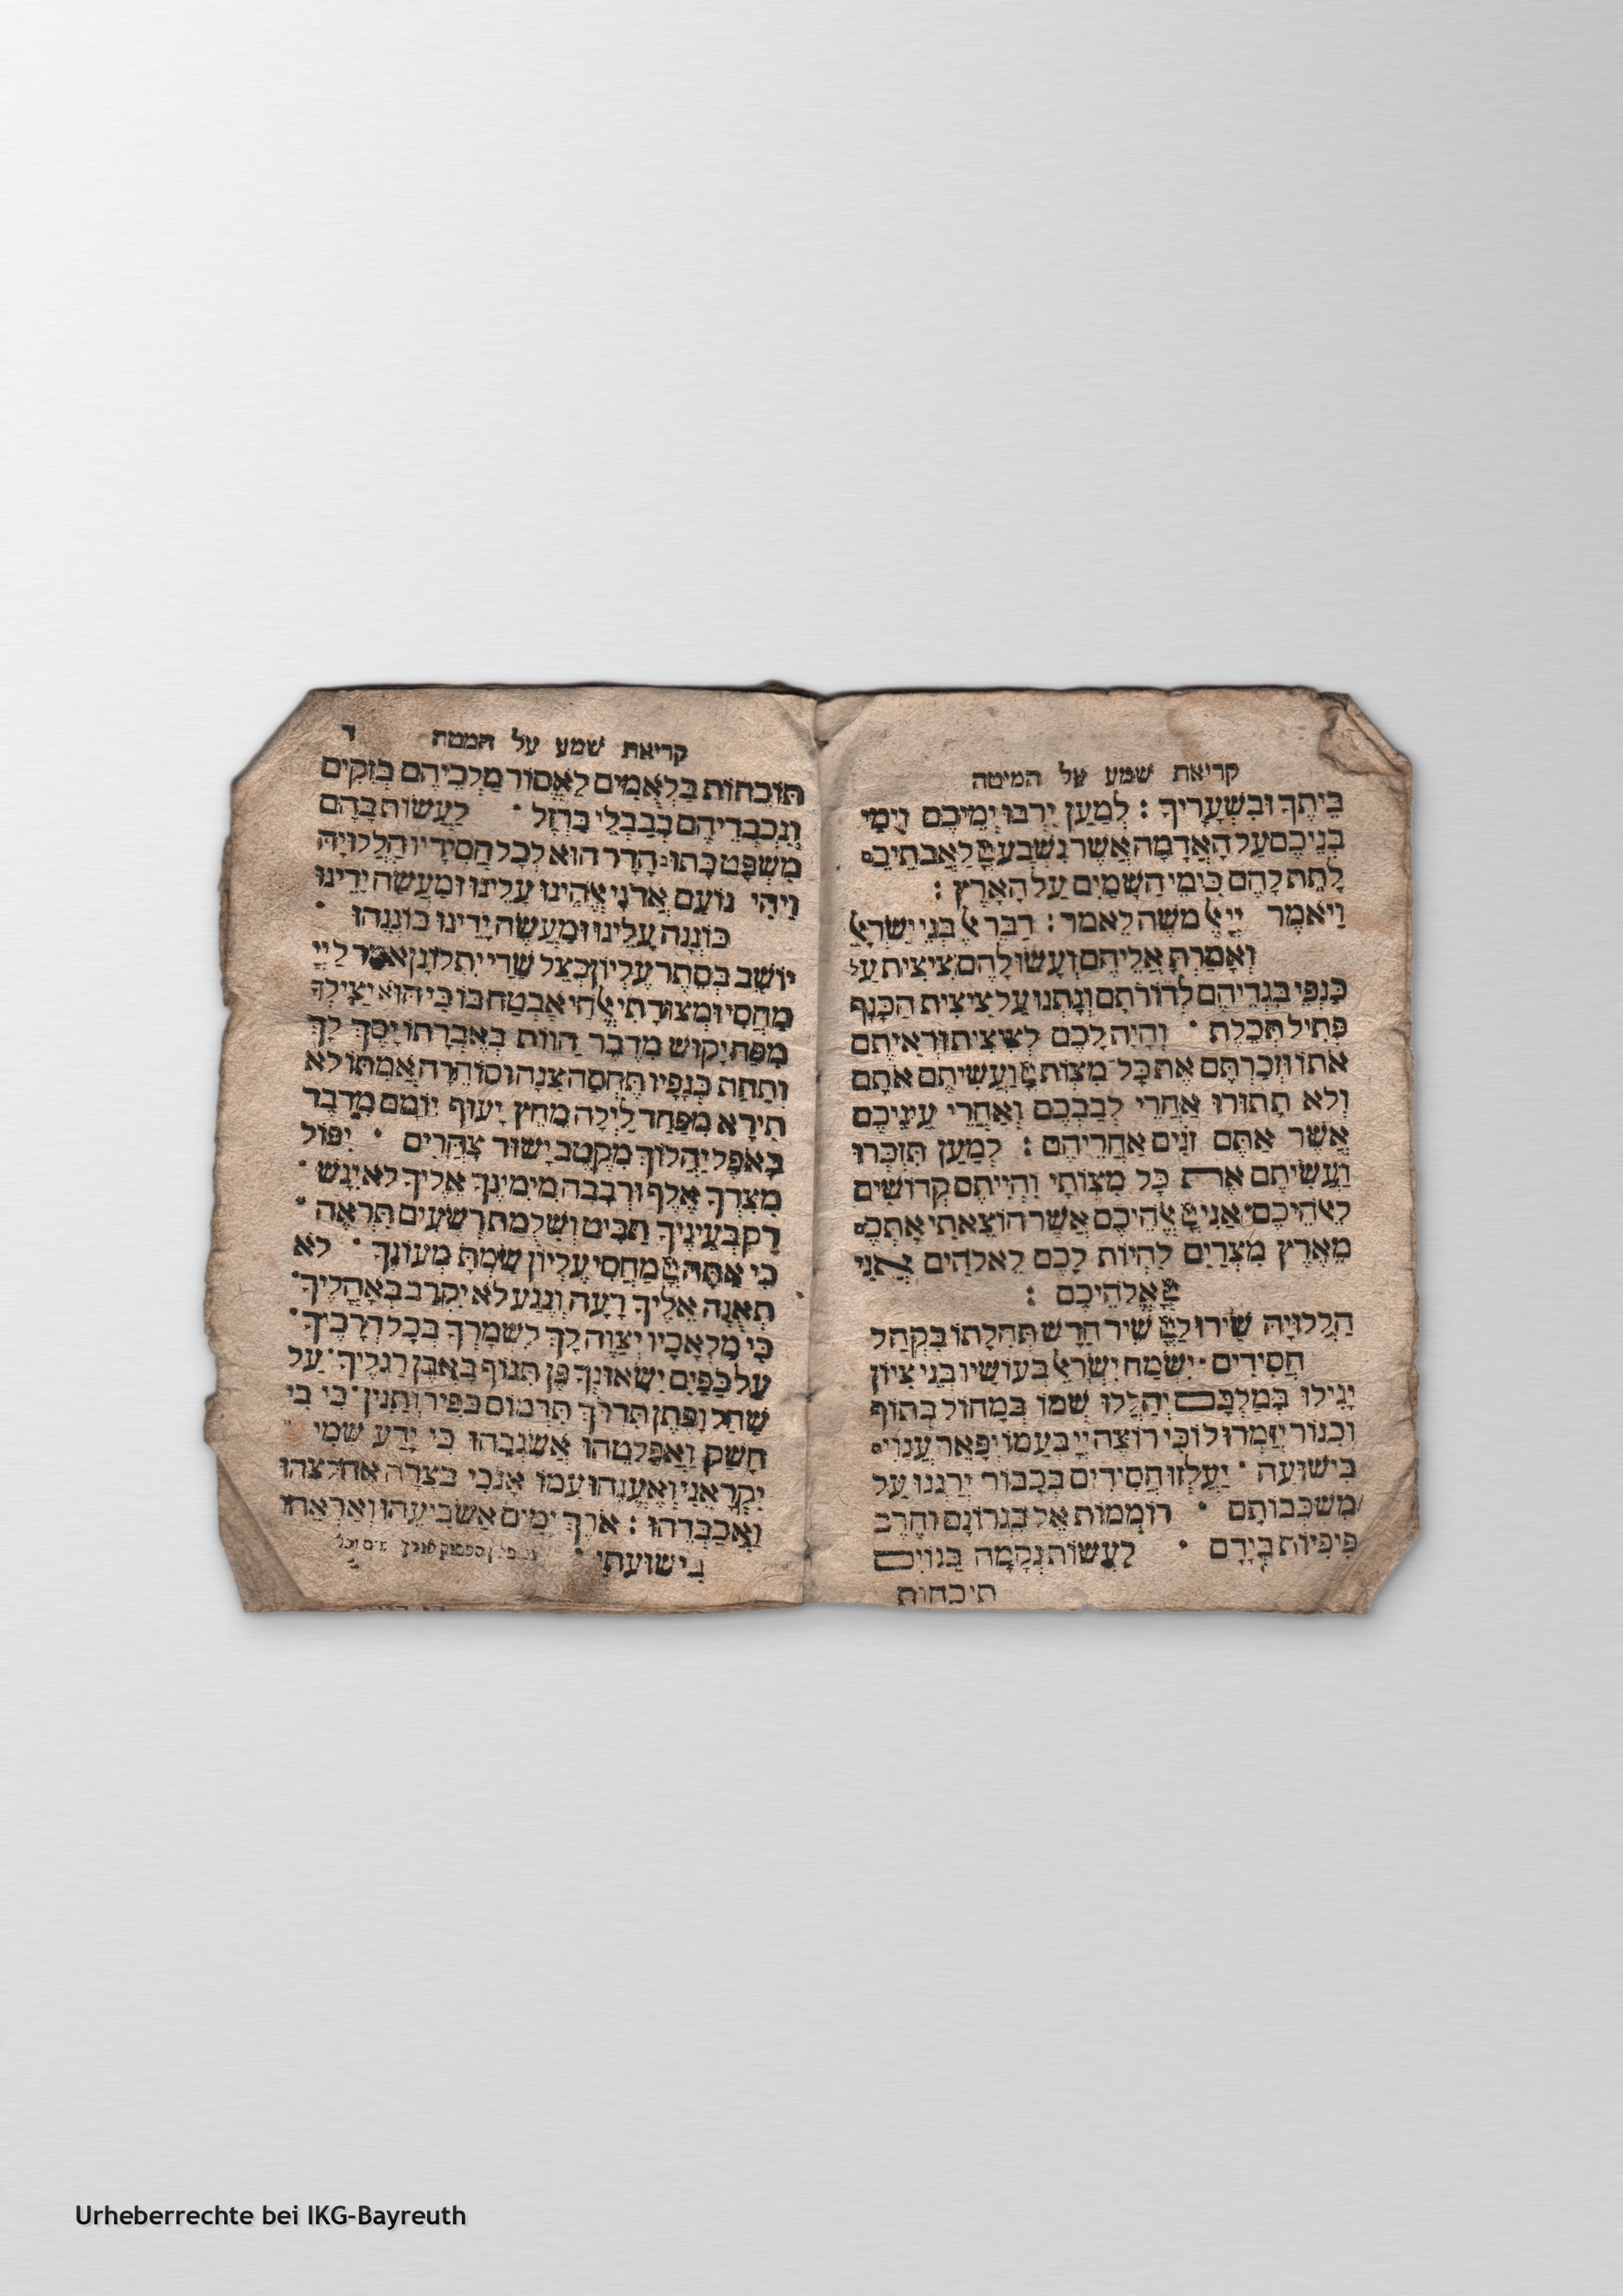 קריאת שמע על המיטה
בֵּיתֶךָ וּבִשְׁעָרֶיךָ : לְמַעַן יִרְבּוּ יְמֵיכֶם וִימֵי
בְנֵיכֶם עַל הָאֲדָמָה אֲשֶׁר נִשְׁבַּע לַאֲבֹתֵיכֶם
לָתֵת לָהֶם כִּימֵי הַשָּׁמַיִם עַל הָאָרֶץ :
וַיֹּאמֶר יְיָ אֶל מֹשֶׁה לֵאמֹר : דַּבֵּר אֶל בְּנֵי יִשְׂרָאֵל
וְאָמַרְתָּ אֲלֵיהֶם וְעָשׂוּ לָהֶם צִיצִית עַל
כַּנְפֵי בִגְדֵיהֶם לְדוֹרֹתָם וְנָתְנוּ עַל צִיצִית הַכָּנָף
פְּתִיל תְּכֵלֶת · וְהָיָה לָכֶם לְצִיצִית וּרְאִיתֶם
אֹתוֹ וּזְכַרְתֶּם אֶת כָּל מִצְוֹת וַעֲשִׂיתֶם אֹתָם
וְלֹא תָתוּרוּ אַחֲרֵי לְבַבְכֶם וְאַחֲרֵי עֵינֵיכֶם
אֲשֶׁר אַתֶּם זֹנִים אַחֲרֵיהֶם : לְמַעַן תִּזְכְּרוּ
וַעֲשִׂיתֶם אֶת כָּל מִצְוֹתָי וִהְיִיתֶם קְדוֹשִׁים
לֵאלֹהֵיכֶם אֲנִי אֱלֹהֵיכֶם אֲשֶׁר הוֹצֵאתִי אֶתְכֶם
מֵאֶרֶץ מִצְרַיִם לִהְיוֹת לָכֶם לֵאלֹהִים אֲנִי
אֱלֹהֵיכֶם :
הַלְלוּיָהּ שִׁירוּ לַ שִׁיר חָדָשׁ תְּהִלָּתוֹ בִּקְהַל
חֲסִידִים · יִשְׂמַח יִשְׂרָאֵל בְּעוֹשָׂיו בְּנֵי צִיּוֹן
יָגִילוּ בְמַלְכָּם יְהַלְלוּ שְׁמוֹ בְמָחוֹל בְּתוֹף
וְכִנּוֹר יְזַמְּרוּ לוֹ כִּי רוֹצֶה יְיָ בְּעַמּוֹ יְפָאֵר עֲנָוִים
בִּישׁוּעָה · יַעְלְזוּ חֲסִידִים בְּכָבוֹד יְרַנְּנוּ עַל
מִשְׁכְּבוֹתָם · רוֹמְמוֹת אֵל בִּגְרוֹנָם וְחֶרֶב
פִּיפִיּוֹת בְּיָדָם · לַעֲשׂוֹת נְקָמָה בַּגּוֹיִם
תוכחות
קריאת שמע על המטה
תּוֹכֵחוֹת בַּלְאֻמִּים לֶאֱסוֹר מַלְכֵיהֶם בְּזִקִּים
וְנִכְבְּדֵיהֶם בְּכַבְלֵי בַרְזֶל · לַעֲשׂוֹת בָּהֶם
מִשְׁפָּט כָּתוּב הָדָר הוּא לְכָל חֲסִידָיו הַלְלוּיָהּ
וִיהִי נוֹעַם אֲדֹנָי אֱלֹהֵינוּ עָלֵינוּ וּמַעֲשֵׂה יָדֵינוּ
כּוֹנְנָה עָלֵינוּ וּמַעֲשֵׂה יָדֵינוּ כּוֹנְנֵהוּ ·
יוֹשֵׁב בְּסֵתֶר עֶלְיוֹן בְּצֵל שַׁדַּי יִתְלוֹנָן אֹמַר לַיְיָ
מַחֲסִי וּמְצוּדָתִי אֱלֹהַי אֶבְטַח בּוֹ כִּי הוּא יַצִּילְךָ
מִפַּח יָקוּשׁ מִדֶּבֶר הַוּוֹת בְּאֶבְרָתוֹ יָסֶךְ לָךְ
וְתַחַת כְּנָפָיו תֶּחְסֶה צִנָּה וְסוֹחֵרָה אֲמִתּוֹ לֹא
תִירָא מִפַּחַד לַיְלָה מֵחֵץ יָעוּף יוֹמָם מִדֶּבֶר
בָּאֹפֶל יַהֲלוֹךְ מִקֶּטֶב יָשׁוּד צָהֳרָיִם · יִפּוֹל
מִצִּדְּךָ אֶלֶף וּרְבָבָה מִימִינֶךָ אֵלֶיךָ לֹא יִגָּשׁ ·
רַק בְּעֵינֶיךָ תַבִּיט וְשִׁלֻּמַת רְשָׁעִים תִּרְאֶה ·
כִּי אַתָּה מַחְסִי עֶלְיוֹן שַׂמְתָּ מְעוֹנֶךָ · לֹא
תְאֻנֶּה אֵלֶיךָ רָעָה וְנֶגַע לֹא יִקְרַב בְּאָהֳלֶיךָ ·
כִּי מַלְאָכָיו יְצַוֶּה לָּךְ לִשְׁמָרְךָ בְּכָל דְּרָכֶיךָ ·
עַל כַּפַּיִם יִשָּׂאוּנְךָ פֶּן תִּגּוֹף בָּאֶבֶן רַגְלֶיךָ · עַל
שַׁחַל וָפֶתֶן תִּדְרוֹךְ תִּרְמוֹס כְּפִיר וְתַנִּין · כִּי בִי
חָשַׁק וַאֲפַלְּטֵהוּ אֲשַׂגְּבֵהוּ כִּי יָדַע שְׁמִי
יִקְרָאֵנִי וְאֶעֱנֵהוּ עִמּוֹ אָנֹכִי בְצָרָה אֲחַלְּצֵהוּ
וַאֲכַבְּדֵהוּ : אֹרֶךְ יָמִים אַשְׂבִּיעֵהוּ וְאַרְאֵהוּ
בִּישׁוּעָתִי ·
Urheberrechte bei IKG-Bayreuth